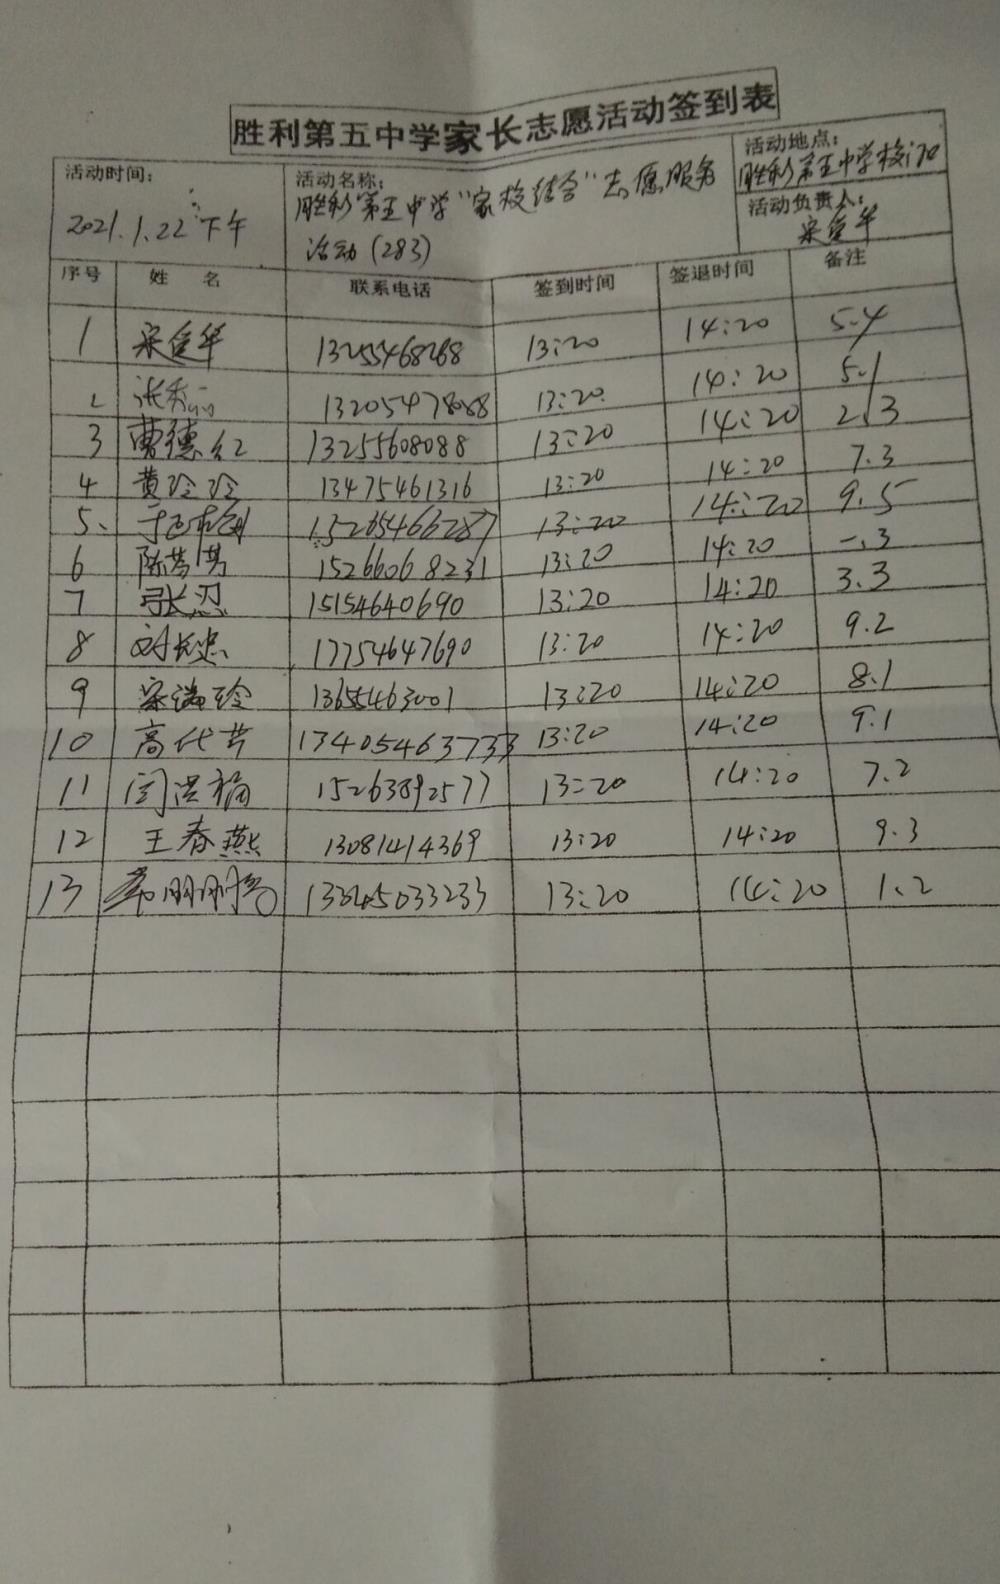 胜利第五中学家长志愿活动签到表
活动时间： 2021.1.22 下午
活动名称： 胜利第五中学“家校结合”志愿服务
活动（283）
活动地点：
胜利第五中学校门口
活动负责人：
序号 姓名 联系电话 签到时间 签退时间 备注
1 13255468268 13:20 14:20 5.4
2 13205478088 13:20 14:20 5.1
3 曹德红 13255608088 13:20 14:20 2.3
4 黄玲玲 13475461316 13:20 14:20 7.3
5、 15265466287 13:20 14:20 9.5
6 陈芳芳 15266068231 13:20 14:20 一.3
7 15154640690 13:20 14:20 3.3
8 刘长忠 17754647690 13:20 14:20 9.2
9 13655463001 13:20 14:20 8.1
10 高代芳 13405463733 13:20 14:20 9.1
11 闫洪福 15263892577 13:20 14:20 7.2
12 王春燕 13081414369 13:20 14:20 9.3
13 13:20 14:20 1.2